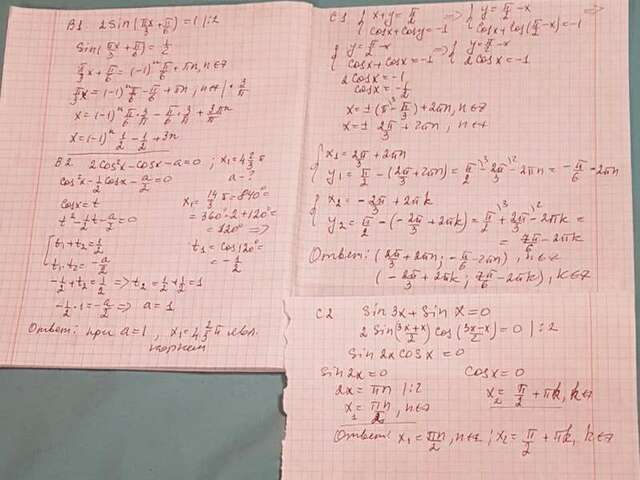 B1. 2Sin(πx/3 + π/6) = 1 | :2
Sin(πx/3 + π/6) = 1/2
πx/3 + π/6 = (-1)ⁿ π/6 + πn, n∈Z
πx/3 = (-1)ⁿ π/6 - π/6 + πn, n∈Z | · 3/π
x = (-1)ⁿ π/6 · 3/π - π/6 · 3/π + 3πn/π
x = (-1)ⁿ 1/2 - 1/2 + 3n
B2. 2cos²x - cosx - a = 0 ; x₁ = 4 2/3 π
cos²x - 1/2 cosx - a/2 = 0 a - ?
cosx = t x₁ = 14/3 π = 840° =
t² - 1/2 t - a/2 = 0 = 360°·2 + 120° =
= 120° =>
{ t₁ + t₂ = 1/2 t₁ = cos120° =
t₁ · t₂ = -a/2 = -1/2
-1/2 + t₂ = 1/2 => t₂ = 1/2 + 1/2 = 1
-1/2 · 1 = -a/2 => a = 1
Ответ: при a = 1, x₁ = 4 2/3 π явл.
корнем
C1 { x + y = π/2 => { y = π/2 - x =>
cosx + cosy = -1 cosx + cos(π/2 - x) = -1
{ y = π/2 - x => { y = π/2 - x
cosx + cosx = -1 2cosx = -1
2cosx = -1
cosx = -1/2
x = ±(π - π/3) + 2πn, n∈Z
x = ± 2π/3 + 2πn, n∈Z
{ x₁ = 2π/3 + 2πn
y₁ = π/2 - (2π/3 + 2πn) = π/2 - 2π/3 - 2πn = -π/6 - 2πn
{ x₂ = -2π/3 + 2πk
y₂ = π/2 - (-2π/3 + 2πk) = π/2 + 2π/3 - 2πk =
= 7π/6 - 2πk
Ответ: (2π/3 + 2πn; -π/6 - 2πn), n∈Z
(-2π/3 + 2πk; 7π/6 - 2πk), k∈Z
C2 Sin3x + Sinx = 0
2Sin(3x+x/2) cos(3x-x/2) = 0 | :2
Sin2x cosx = 0
Sin2x = 0 cosx = 0
2x = πn | :2 x₂ = π/2 + πk, k∈Z
x₁ = πn/2, n∈Z
Ответ: x₁ = πn/2, n∈Z ; x₂ = π/2 + πk, k∈Z